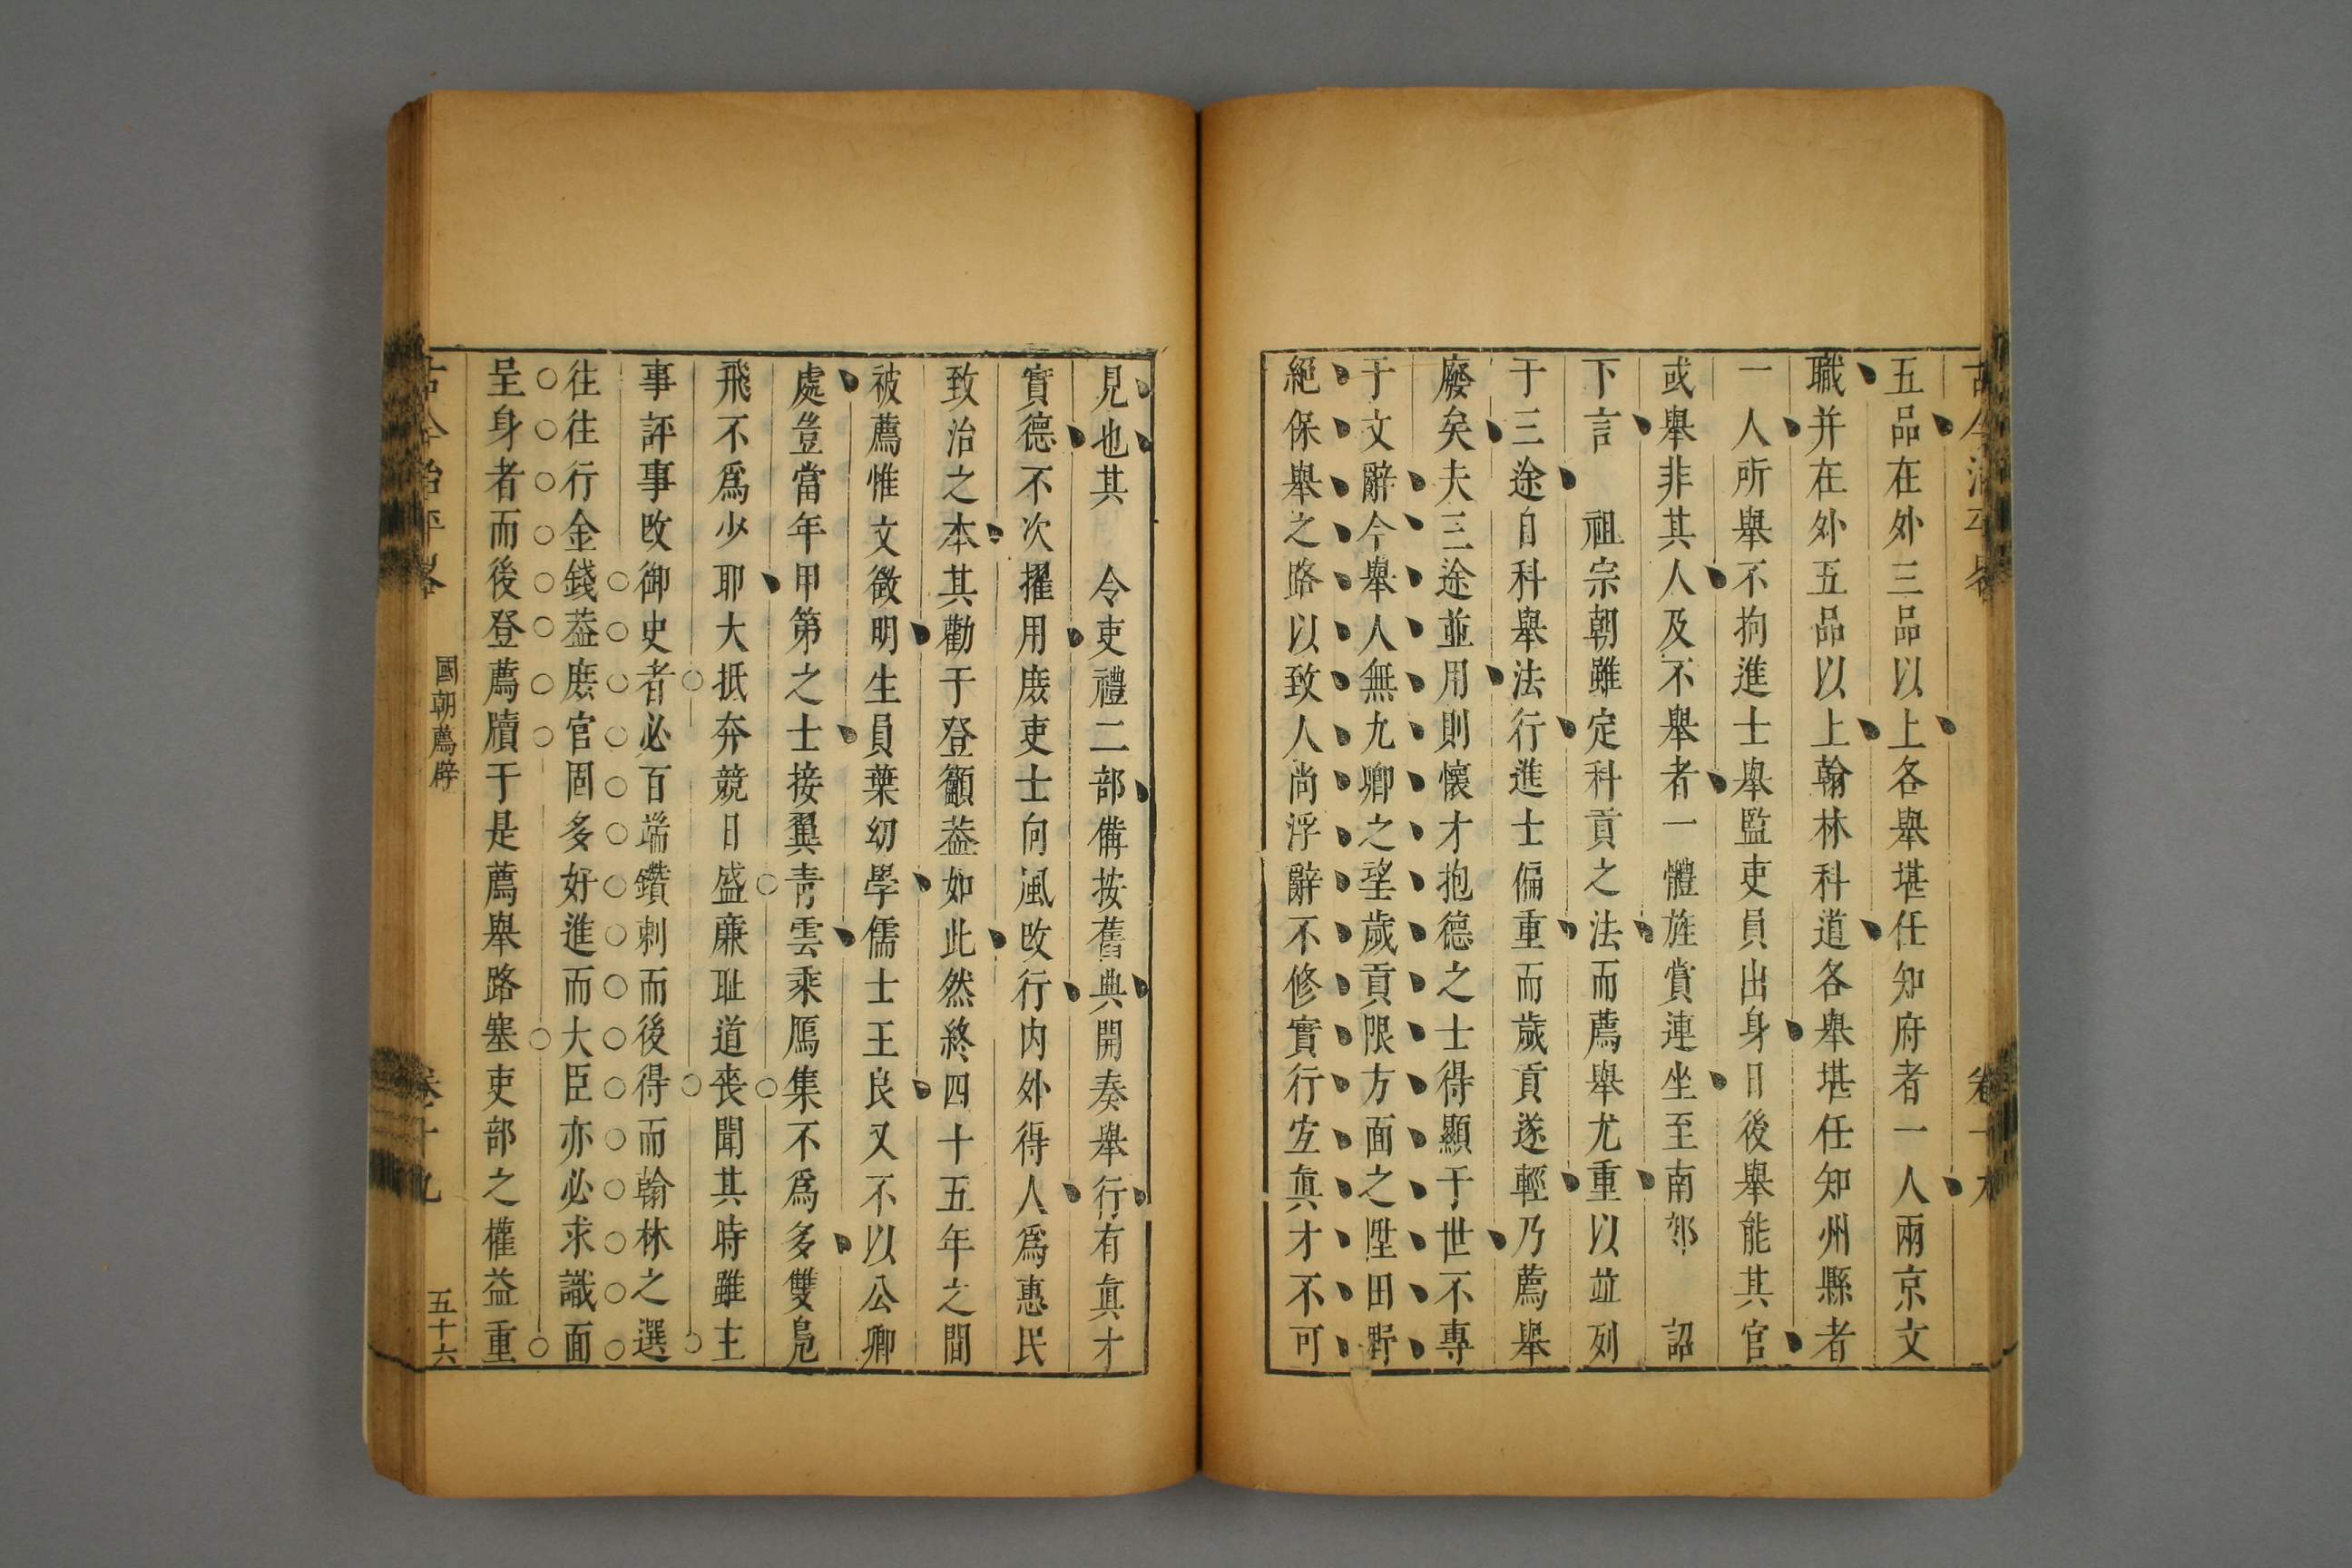 五品在外三品以上各舉堪任知府者一人兩京文
職并在外五品以上翰林科道各舉堪任知州縣者
一人所舉不拘進士舉監吏員出身日後舉能其官
或舉非其人及不舉者一體旌賞連坐至南郊　詔
下言　祖宗朝雖定科貢之法而薦舉尤重以並列
于三途自科舉法行進士偏重而歲貢遂輕乃薦舉
廢矣夫三途並用則懷才抱德之士得顯于世不專
于文辭今舉人無九卿之望歲貢限方面之陞田野
絕保舉之路以致人尚浮辭不修實行宐眞才不可
見也其　令吏禮二部備按舊典開奏舉行有眞才
實德不次擢用庻吏士向風改行内外得人爲惠民
致治之本其勸于登籲葢如此然終四十五年之間
被薦惟文徵明生員葉幼學儒士王良又不以公卿
處豈當年甲第之士接翼青雲乘鴈集不爲多雙鳬
飛不爲少耶大抵奔競日盛廉耻道喪聞其時雖主
事評事改御史者必百端鑽刺而後得而翰林之選
往往行金錢葢庶官固多好進而大臣亦必求識面
呈身者而後登薦牘于是薦舉路塞吏部之權益重
國朝薦辟
卷十九
五十六